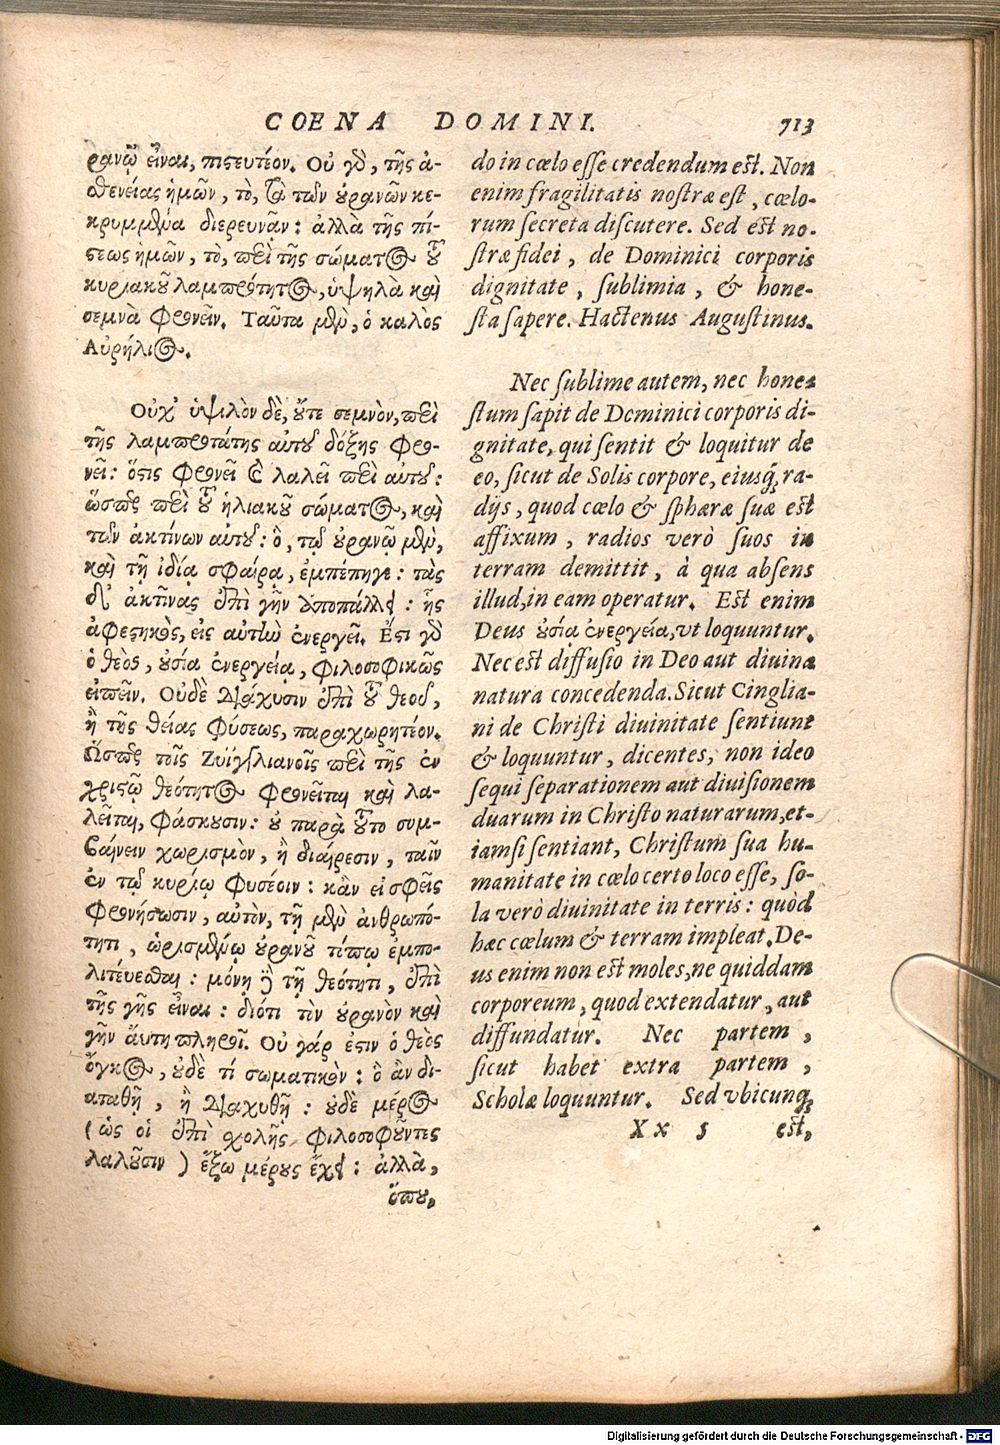 COENA DOMINI. 713
ρανῷ εἶναι, πιστευτέον. Οὐ γδ, τῆς ἀ-
σθενείας ἡμῶν, τὸ, τὰ τῶν οὐρανῶν κε-
κρυμμένα διερευνᾶν: ἀλλὰ τῆς πί-
στεως ἡμῶν, τὸ, περὶ τῆς σώματος τοῦ
κυριακοῦ λαμπρότητος, ὑψηλὰ καὶ
σεμνὰ φρονεῖν. Ταῦτα μὲν, ὁ καλὸς
Αὐρήλιος.
Οὐχ' ὑψιλὸν δὲ, οὔτε σεμνὸν, περὶ
τῆς λαμπροτάτης αὐτοῦ δόξης φρο-
νεῖ: ὅστις φρονεῖ καὶ λαλεῖ περὶ αὐτοῦ:
ὥσπερ περὶ τοῦ ἡλιακοῦ σώματος, καὶ
τῶν ἀκτίνων αὐτοῦ: ὃ, τῷ οὐρανῷ μὲν,
καὶ τῇ ἰδίᾳ σφαίρᾳ, ἐμπέπηγε: τὰς
δ' ἀκτῖνας ἐπὶ γῆν ὑποπάλλει: ἧς
ἀφεστηκὸς, εἰς αὐτὴν ἐνεργεῖ. Ἔστι γδ
ὁ θεὸς, οὐσία ἐνεργείᾳ, φιλοσοφικῶς
εἰπεῖν. Οὐδὲ διάχυσιν ἐπὶ τοῦ θεοῦ,
ἢ τῆς θείας φύσεως, παραχωρητέον.
Ὥσπερ τοῖς Ζυϊγγλιανοῖς περὶ τῆς ἐν
χριστῷ θεότητος φρονεῖται καὶ λα-
λεῖται, φάσκουσιν: οὐ παρὰ τοῦτο συμ-
βαίνειν χωρισμὸν, ἢ διαίρεσιν, ταῖν
ἐν τῷ κυρίῳ φυσέοιν: κἂν εἰ σφεῖς
φρονήσωσιν, αὐτὸν, τῇ μὲν ἀνθρωπό-
τητι, ὡρισμένῳ οὐρανοῦ τόπῳ ἐμπο-
λιτεύεσθαι: μόνῃ δὲ τῇ θεότητι, ἐπὶ
τῆς γῆς εἶναι: διότι τὸν οὐρανὸν καὶ
γῆν αὕτη πληροῖ. Οὐ γάρ ἐστιν ὁ θεὸς
ὄγκος, οὐδὲ τί σωματικὸν: ὃ ἂν δι-
αταθῇ, ἢ διαχυθῇ: οὐδὲ μέρος
(ὡς οἱ ἐπὶ σχολῆς φιλοσοφοῦντες
λαλοῦσιν) ἔξω μέρους ἔχει: ἀλλὰ,
ὅπου,
do in cœlo esse credendum est. Non
enim fragilitatis nostræ est, cœlo-
rum secreta discutere. Sed est no-
stræ fidei, de Dominici corporis
dignitate, sublimia, & hone-
sta sapere. Hactenus Augustinus.
Nec sublime autem, nec hone-
stum sapit de Dominici corporis di-
gnitate, qui sentit & loquitur de
eo, sicut de Solis corpore, eiusq́, ra-
dijs, quod cœlo & sphæræ suæ est
affixum, radios verò suos in
terram demittit, à qua absens
illud, in eam operatur. Est enim
Deus οὐσία ἐνεργείᾳ, vt loquuntur.
Nec est diffusio in Deo aut diuina
natura concedenda. Sicut Cinglia-
ni de Christi diuinitate sentiunt
& loquuntur, dicentes, non ideo
sequi separationem aut diuisionem
duarum in Christo naturarum, et-
iamsi sentiant, Christum sua hu-
manitate in cœlo certo loco esse, so-
la verò diuinitate in terris: quòd
hæc cœlum & terram impleat. De-
us enim non est moles, ne quiddam
corporeum, quod extendatur, aut
diffundatur. Nec partem,
sicut habet extra partem,
Scholæ loquuntur. Sed vbicunq́,
Xx 5 est,
Digitalisierung gefördert durch die Deutsche Forschungsgemeinschaft - DFG